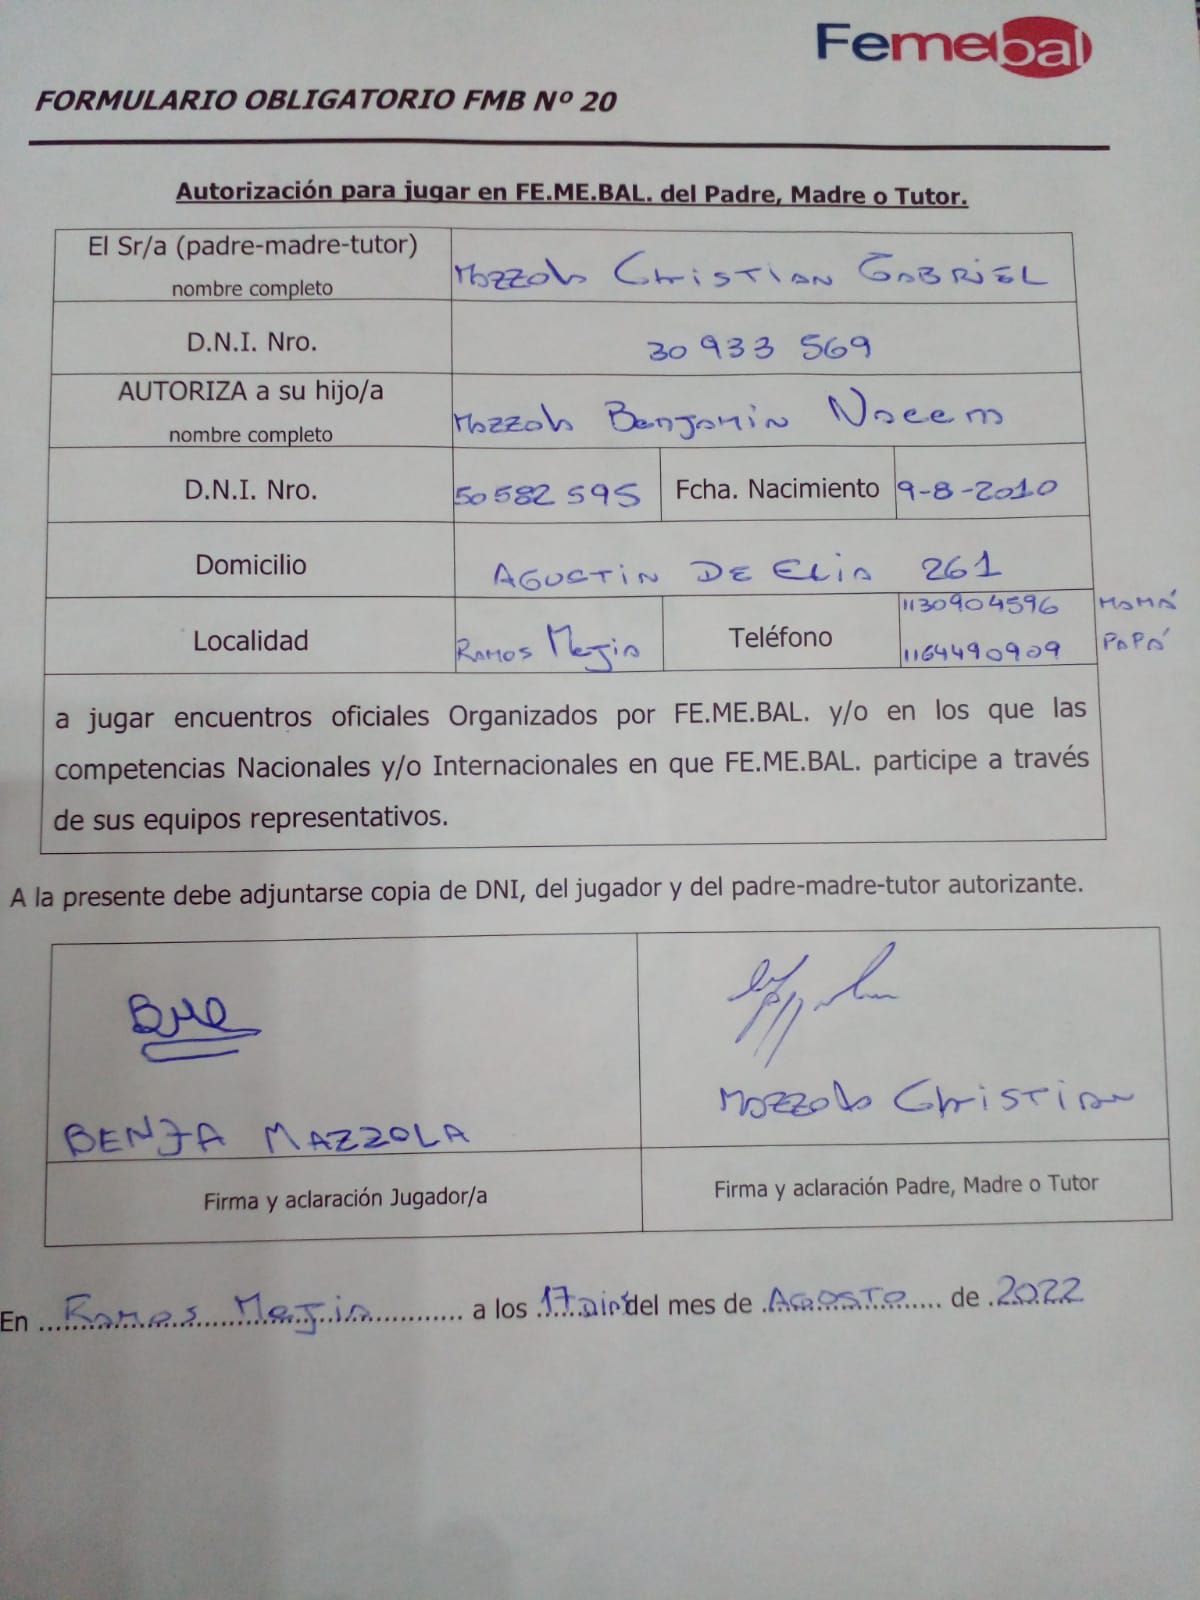 Femebal
FORMULARIO OBLIGATORIO FMB Nº 20
Autorización para jugar en FE.ME.BAL. del Padre, Madre o Tutor.
El Sr/a (padre-madre-tutor) nombre completo Mazzola Christian Gabriel
D.N.I. Nro. 30 933 569
AUTORIZA a su hijo/a nombre completo Mazzola Benjamin Naeem
D.N.I. Nro. 50 582 595 Fcha. Nacimiento 9-8-2010
Domicilio AGUSTIN DE Elia 261
Localidad Ramos Mejia Teléfono 1130904596 MAMÁ
1164490909 PAPÁ
a jugar encuentros oficiales Organizados por FE.ME.BAL. y/o en los que las
competencias Nacionales y/o Internacionales en que FE.ME.BAL. participe a través
de sus equipos representativos.
A la presente debe adjuntarse copia de DNI, del jugador y del padre-madre-tutor autorizante.
BENJA MAZZOLA
Mazzola Christian
Firma y aclaración Jugador/a
Firma y aclaración Padre, Madre o Tutor
En Ramos Mejia a los 17 del mes de Agosto de 2022